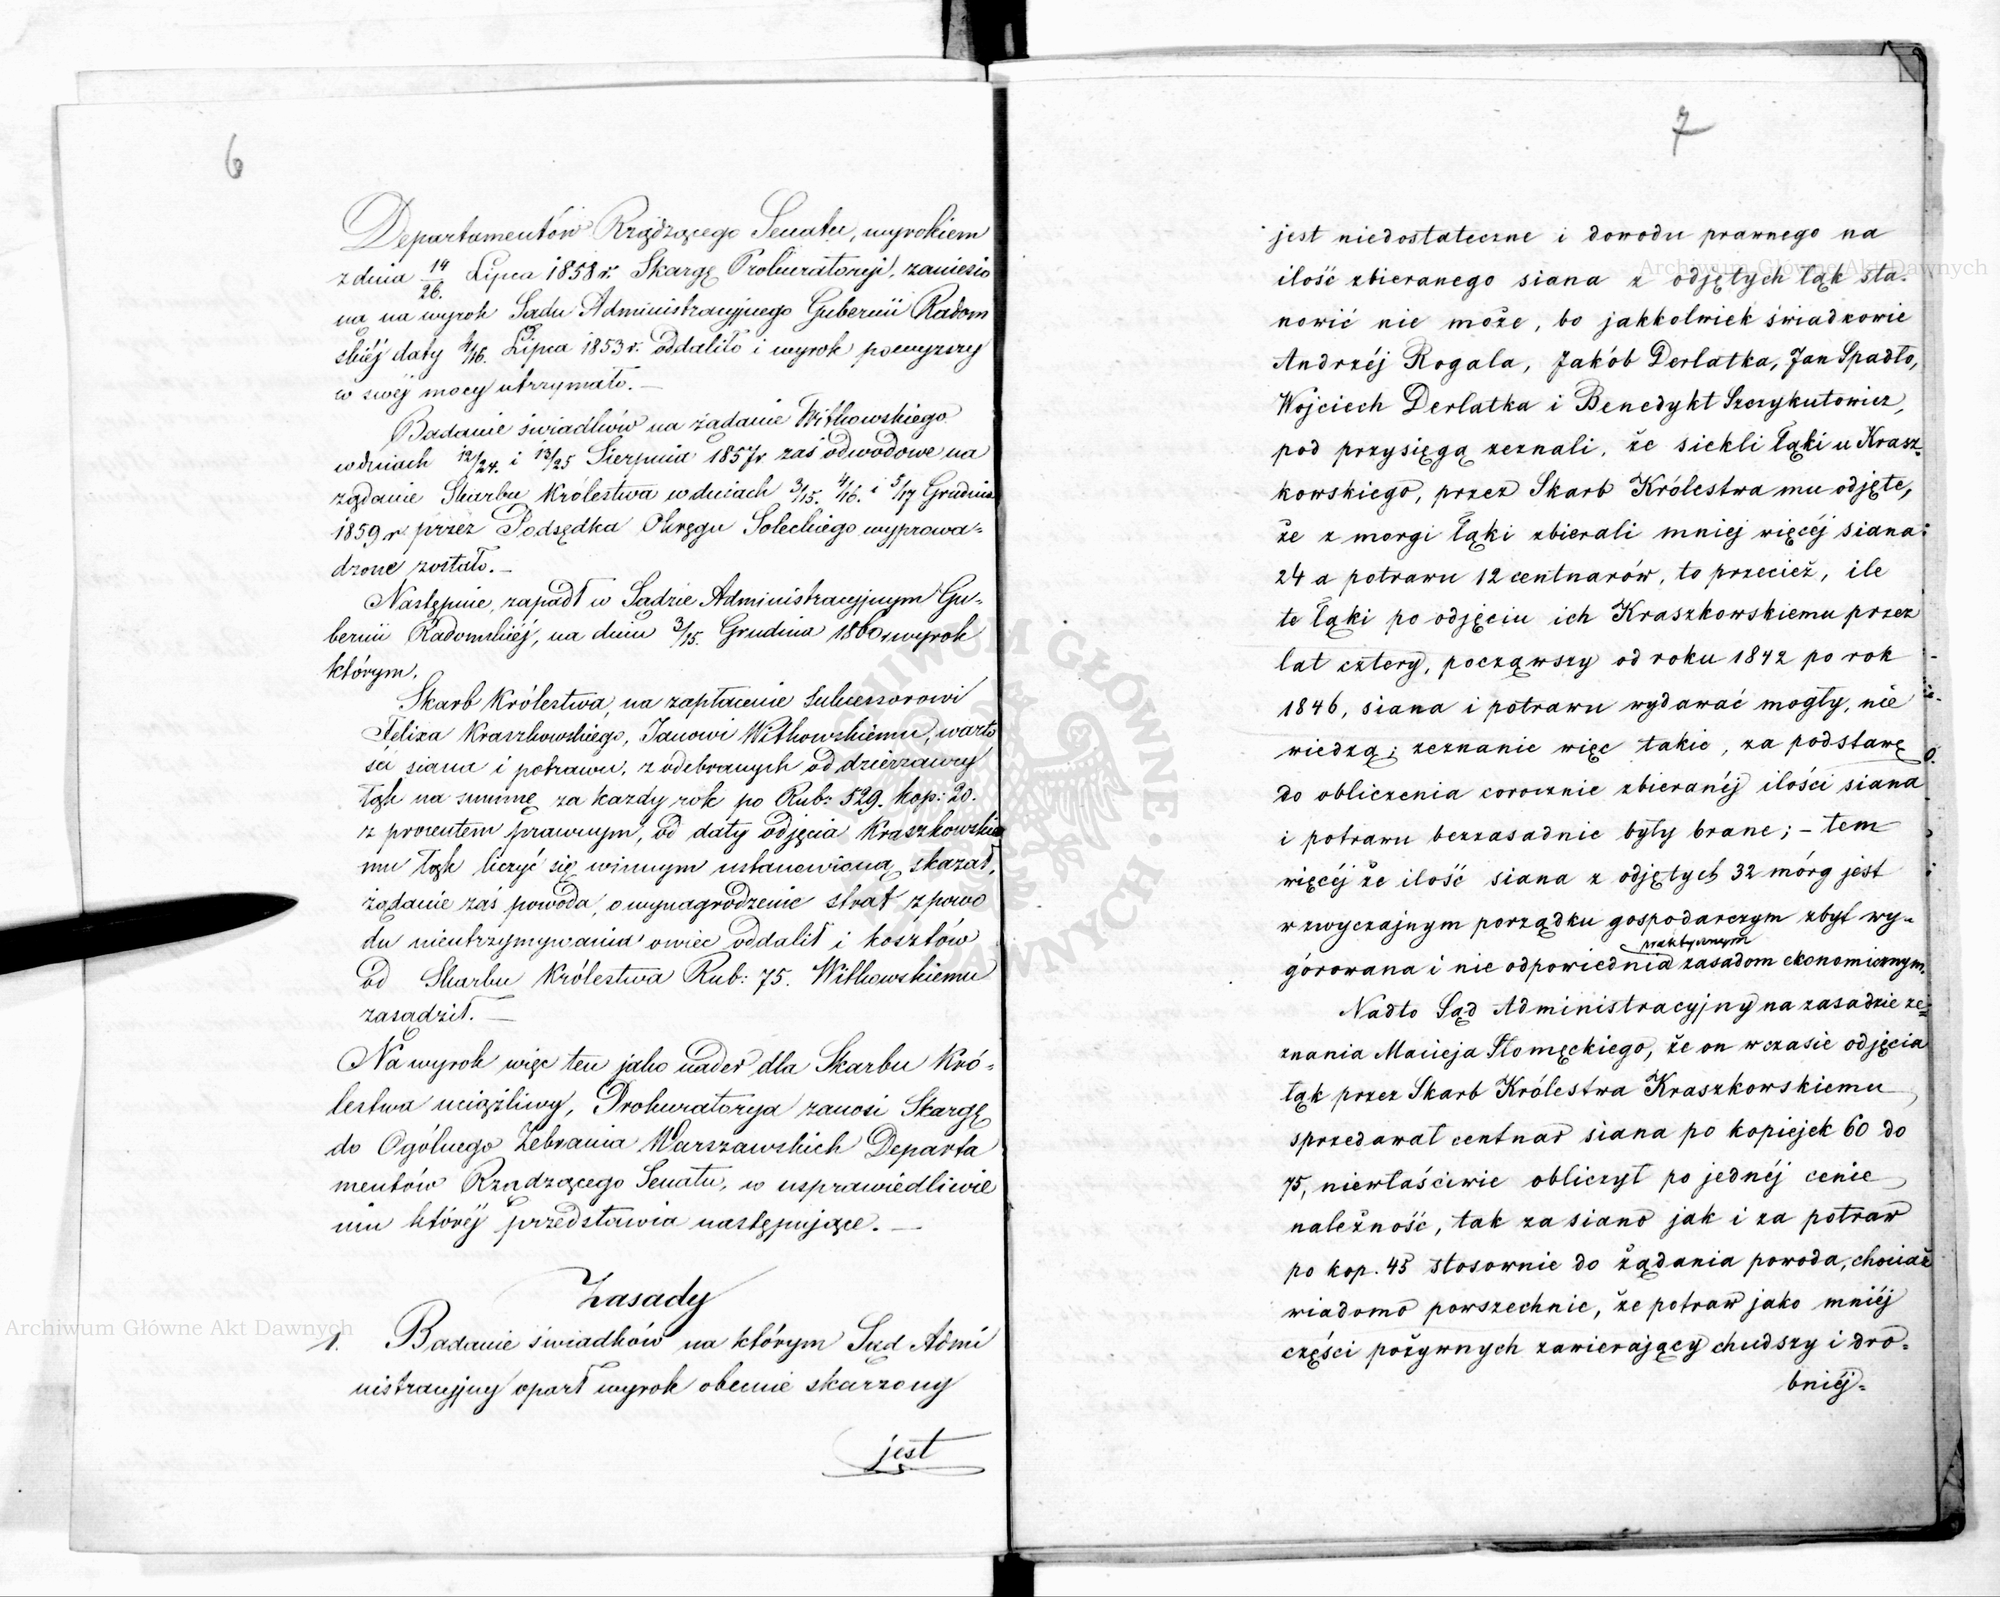 6
Departamentów Rządzącego Senatu, wyrokiem
z dnia 14/26. Lipca 1858 r. Skargę Prokuratoryi, zaniesio
na na wyrok Sądu Administracyjnego Gubernii Radom
skiéj daty 4/16. Lipca 1853 r. oddaliło i wyrok powyższy
w swéj mocy utrzymało. —
Badanie świadków na żądanie Witkowskiego
w dniach 12/24. i 13/25 Sierpnia 1857 r. zaś odwodowe na
żądanie Skarbu Królestwa w dniach 3/15. 4/16. i 5/17 Grudnia
1859 r. przez Podsędka Okręgu Soleckiego wyprowa-
dzone zostało. —
Następnie, zapadł w Sądzie Administracyjnym Gu-
bernii Radomskiéj, na dniu 3/15. Grudnia 1860 r. wyrok
którym.
Skarb Królestwa, na zapłacenie Sukcessorowi
Felixa Kraszkowskiego, Janowi Witkowskiemu, warto
ści siana i potrawu, z odebranych od dzierżawy
łąk na summę za każdy rok po Rub: 529. kop: 20.
z procentem prawnym, od daty odjęcia Kraszkowskie
mu łąk liczyć się winnym ustanowioną skazał,
żądanie zaś powoda, o wynagrodzenie strat z powo
du nieutrzymywania owiec oddalił i kosztów
od Skarbu Królestwa Rub: 75. Witkowskiemu
zasądził. —
Na wyrok więc ten jako nader dla Skarbu Kró-
lestwa uciążliwy, Prokuratorya zanosi Skargę
do Ogólnego Zebrania Warszawskich Departa
mentów Rządzącego Senatu, w usprawiedliwie
niu któréj przedstawia następujące. —
Zasady
1. Badanie świadków na którym Sąd Admi
nistracyjny oparł wyrok obecnie skarżony
jest
7
jest niedostateczne i dowodu prawnego na
ilość zbieranego siana z odjętych łąk sta-
nowić nie może, bo jakkolwiek świadkowie
Andrzéj Rogala, Jakób Derlatka, Jan Spadło,
Wojciech Derlatka i Benedykt Szczykutowicz,
pod przysięgą zeznali, że siekli łąki u Krasz-
kowskiego, przez Skarb Królestwa mu odjęte,
że z morgi łąki zbierali mniej więcéj siana:
24 a potrawu 12 centnarów, to przecież, ile
te łąki po odjęciu ich Kraszkowskiemu przez
lat cztery, począwszy od roku 1842 po rok
1846, siana i potrawu wydawać mogły, nie
wiedzą; zeznanie więc takie, za podstawę
do obliczenia corocznie zbieranéj ilości siana
i potrawu bezzasadnie były brane; – tem
więcéj że ilość siana z odjętych 32 mórg jest
w zwyczajnym porządku gospodarczym zbyt wy-
górowana i nie odpowiednia praktycznym zasadom ekonomicznym.
Nadto Sąd Administracyjny na zasadzie ze=
znania Macieja Słomęckiego, że on w czasie odjęcia
łąk przez Skarb Królestwa Kraszkowskiemu
sprzedawał centnar siana po kopiejek 60 do
75, niewłaściwie obliczył po jednéj cenie
należność, tak za siano jak i za potraw
po kop. 45 stosownie do żądania powoda, chociaż
wiadomo powszechnie, że potraw jako mniéj
części pożywnych zawierający chudszy i dro-
bniéj-
Archiwum Główne Akt Dawnych
Archiwum Główne Akt Dawnych
Archiwum Główne Akt Dawnych